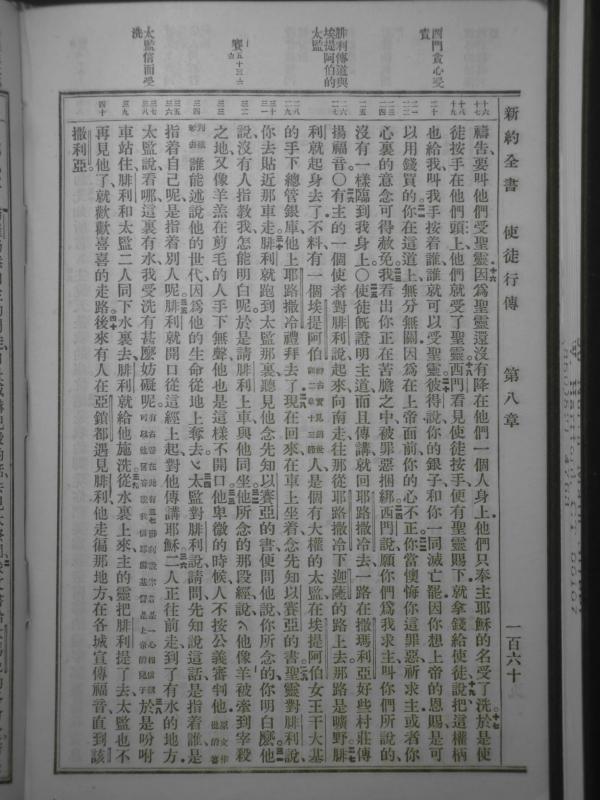 新約全書 使徒行傳 第八章 一百六十
西門貪心受責
腓利傳道與埃提阿伯的太監
賽五十三
太監信而受洗
禱告要叫他們受聖靈因爲聖靈還沒有降在他們一個人身上他們只奉主耶穌的名受了洗於是使
徒按手在他們頭上他們就受了聖靈西門看見使徒按手便有聖靈賜下就拿錢給使徒說把這權柄
也給我叫我手按着誰誰就可以受聖靈彼得說你的銀子和你一同滅亡罷因你想上帝的恩賜是可
以用錢買的你在這道上無分無關因爲在上帝面前你的心不正你當懊悔你這罪惡祈求主或者你
心裏的意念可得赦免我看出你正在苦膽之中被罪惡捆綁西門說願你們爲我求主叫你們所說的
沒有一樣臨到我身上〇使徒旣證明主道而且傳講就回耶路撒冷去一路在撒瑪利亞好些村莊傳
揚福音〇有主的一個使者對腓利說起來向南走往那從耶路撒冷下迦薩的路上去那路是曠野腓
利就起身去了不料有一個埃提阿伯人是個有大權的太監在埃提阿伯女王干大基
的手下總管銀庫他上耶路撒冷禮拜去了現在回來在車上坐着念先知以賽亞的書聖靈對腓利說
你去貼近那車走腓利就跑到太監那裏聽見他念先知以賽亞的書便問他說你所念的你明白麼他
說沒有人指教我怎能明白呢於是請腓利上車與他同坐他所念的那段經說他像羊被牽到宰殺
之地又像羊羔在剪毛的人手下無聲他也是這樣不開口他卑微的時候人不按公義審判他
誰能述說他的世代因爲他的生命從地上奪去太監對腓利說請問先知說這話是指着誰是
指着自己呢是指着別人呢腓利就開口從這經上起對他傳講耶穌二人正往前走到了有水的地方
太監說看哪這裏有水我受洗有甚麼妨礙呢於是吩咐
車站住腓利和太監二人同下水裏去腓利就給他施洗從水裏上來主的靈把腓利提了去太監也不
再見他了就歡歡喜喜的走路後來有人在亞鎖都遇見腓利他走徧那地方在各城宣傳福音直到該
撒利亞